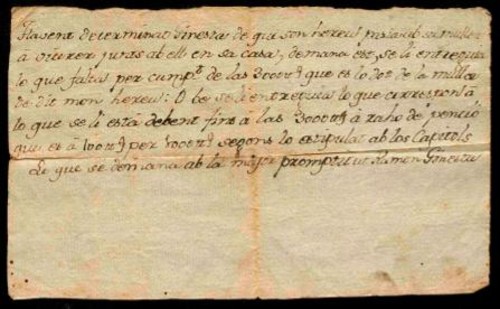 Havent determinat Ginesta de que son hereu pasia ab sa muller
à viurer junts ab ell en sa casa, demana est, se li entreguia
lo que falta per cumpt. de las 3000 ʉ que es lo dot de la muller
de dit mon hereu: O be se li entreguia lo que correspon à
lo que se li està debent fins a las 3000 ʉ à raho de penció
que es à 100 ʉ per 1000 ʉ segons lo estipulat ab los Capitols
Lo que se demana ab la major promptitut Ramon Ginesta